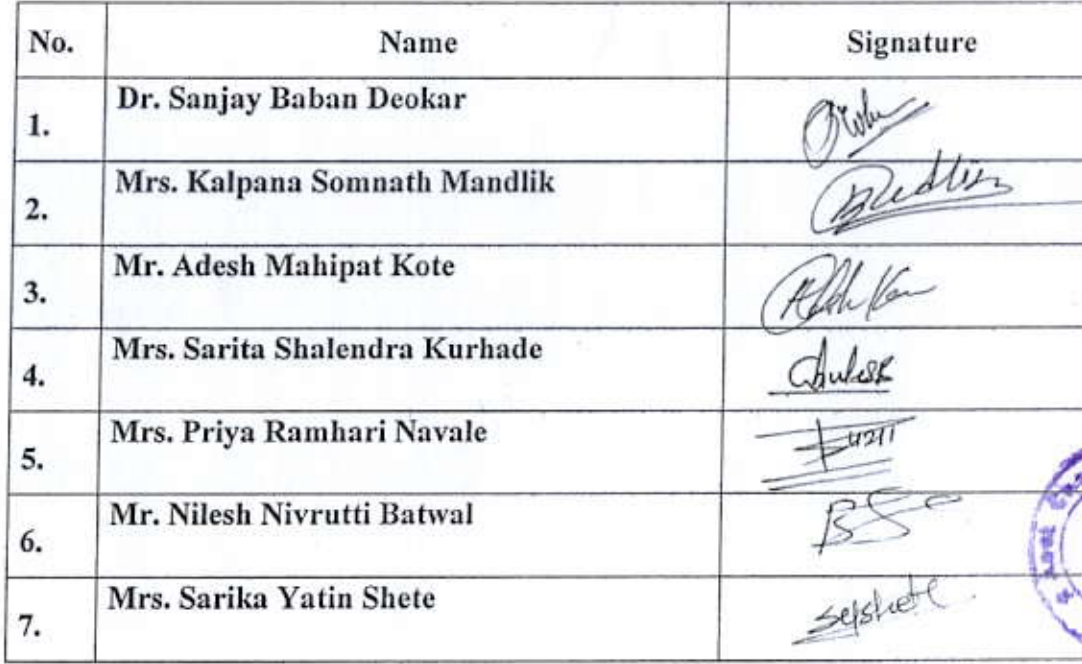 No. Name Signature
1. Dr. Sanjay Baban Deokar
2. Mrs. Kalpana Somnath Mandlik
3. Mr. Adesh Mahipat Kote
4. Mrs. Sarita Shalendra Kurhade
5. Mrs. Priya Ramhari Navale
6. Mr. Nilesh Nivrutti Batwal
7. Mrs. Sarika Yatin Shete